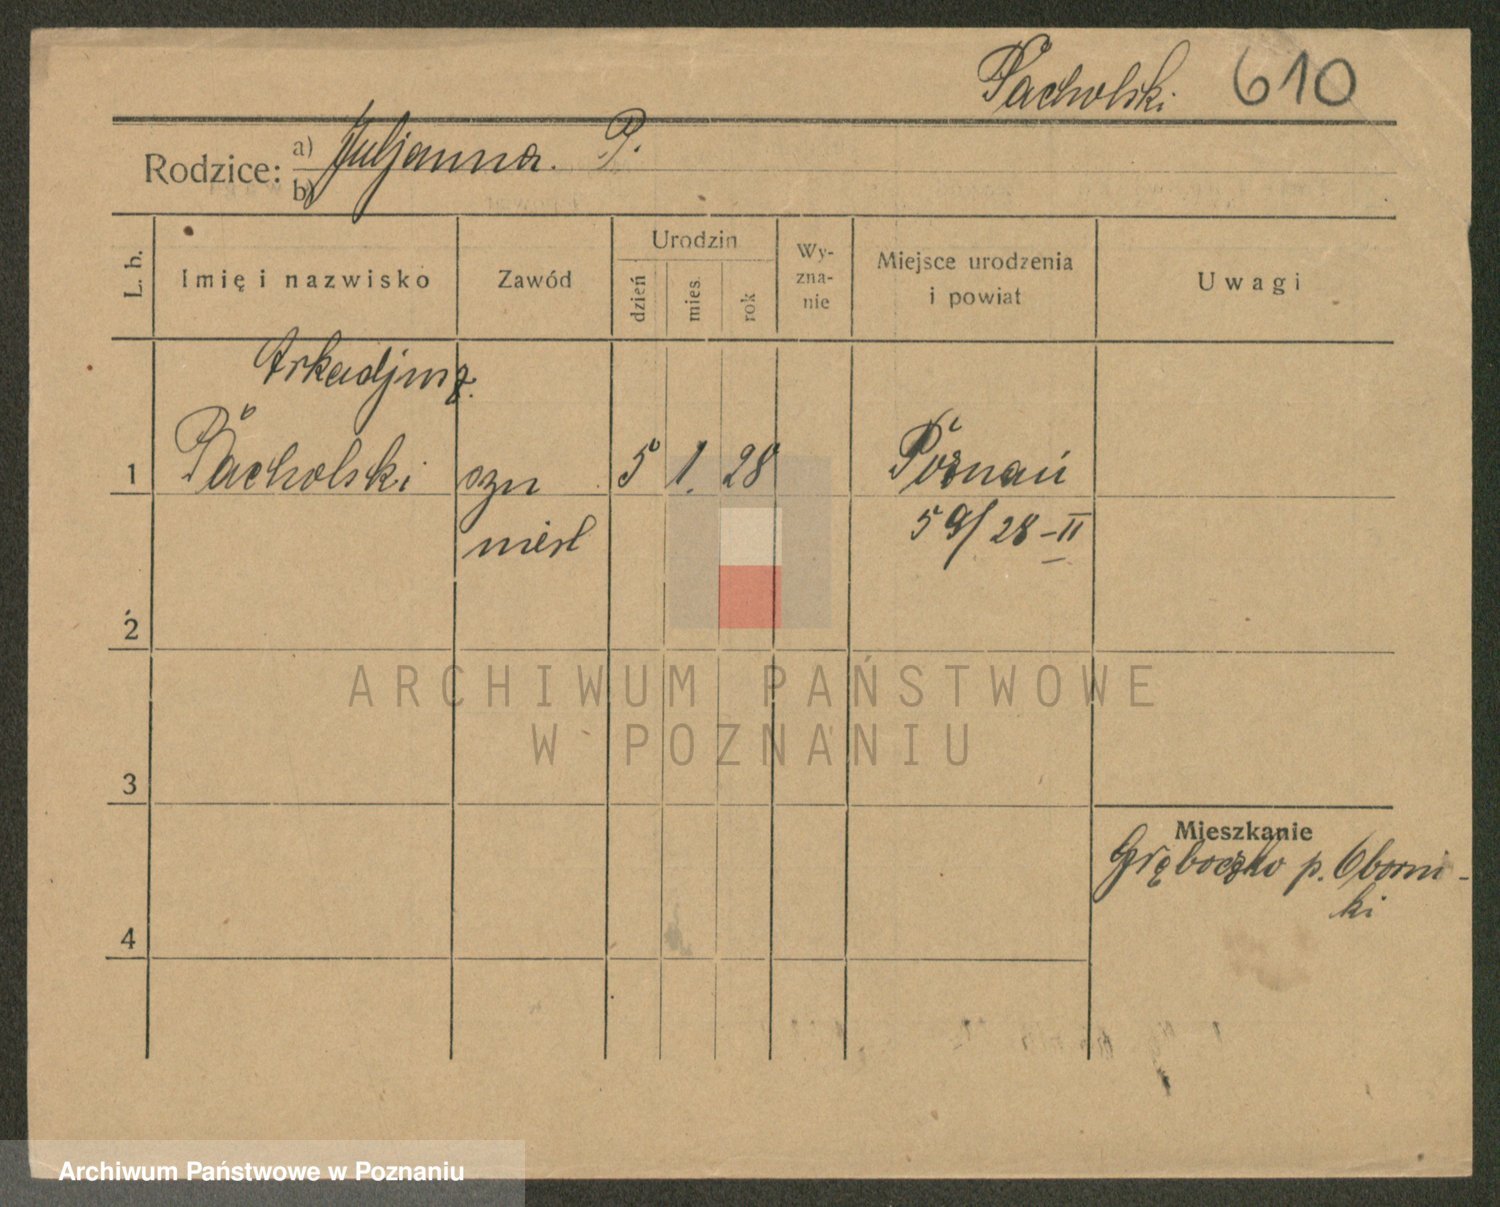 Pacholski 610
Rodzice: a) Juljanna. P.
b)
L. b.
Imię i nazwisko
Zawód
Urodzin
dzień
mies.
rok
Wy-
zna-
nie
Miejsce urodzenia
i powiat
Uwagi
Arkadjusz.
1 Pacholski szn 5 1. 28 Poznań
nieśl 59/28-II
2
3
4
Mieszkanie
Gręboczko p. Oborni-
ki
ARCHIWUM PAŃSTWOWE
W POZNANIU
Archiwum Państwowe w Poznaniu